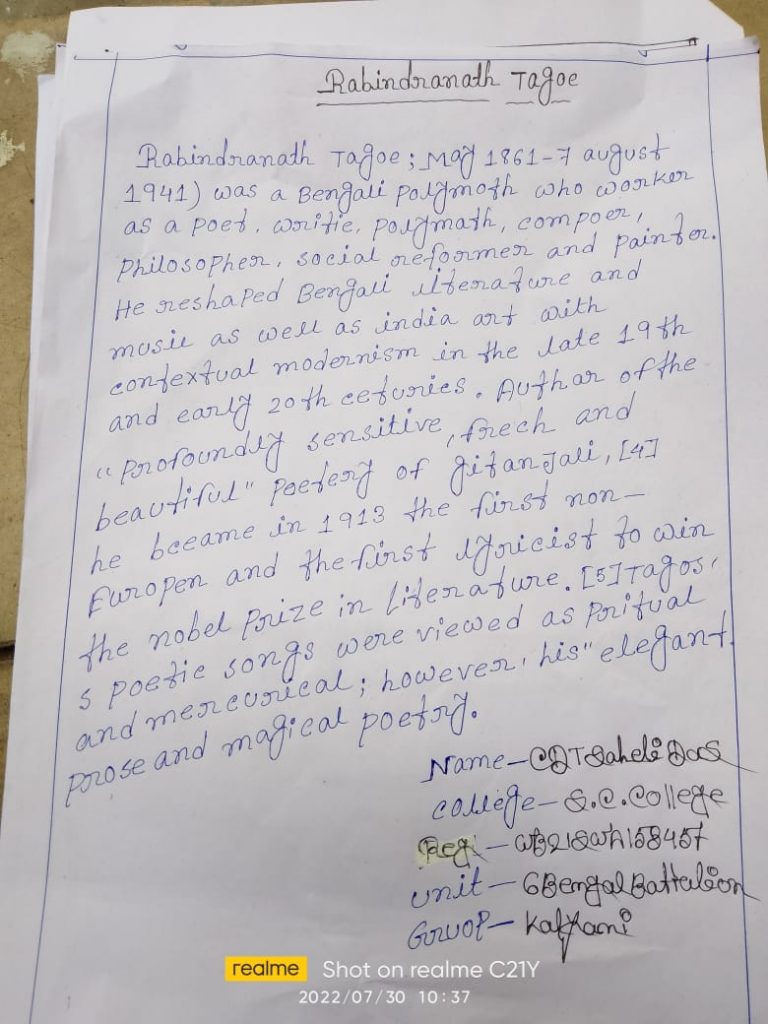 Rabindranath Tagoe
Rabindranath Tagoe; May 1861-7 august
1941) was a Bengali polymoth who worker
as a poet. writie, polymath, compoer,
philosopher, social reformer and painter.
He reshaped Bengali literature and
music as well as india art with
contextual modernism in the late 19th
and early 20th ceturies. Author of the
"profoundly sensitive, frech and
beautiful" poetery of gitanjali, [4]
he bceame in 1913 the first non-
Europen and the first lyricist to win
the nobel prize in literature. [5] Tagos'
s poetie songs were viewed as pritual
and mercurical; however, his "elegant
prose and magical poetry.
Name - CDT Saheli Das
college - S.C. College
Reg - WB21SWA158457
unit - 6 Bengal Battalion
Gruop - Kalyani
realme Shot on realme C21Y
2022/07/30 10:37